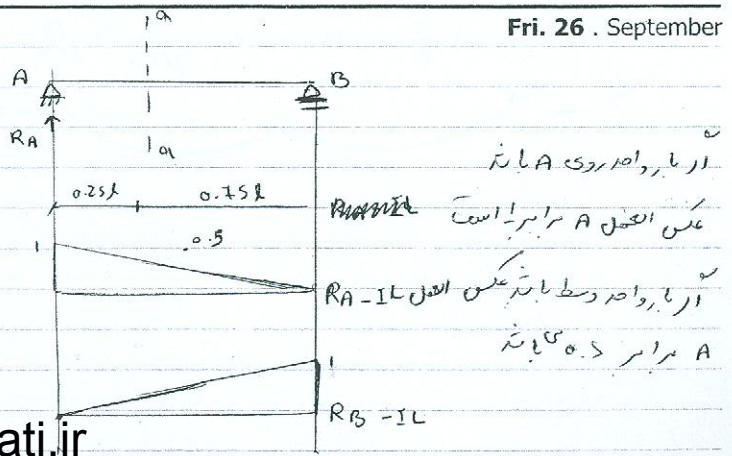 Fri. 26 . September
a
A
B
RA
a
0.25l
0.75l
1
0.5
RA-IL
1
RB-IL
اگر بار واحد روی A باشد
عکس العمل A برابر 1 است
اگر بار واحد وسط باشد عکس العمل
A برابر 0.5 می باشد
ati.ir